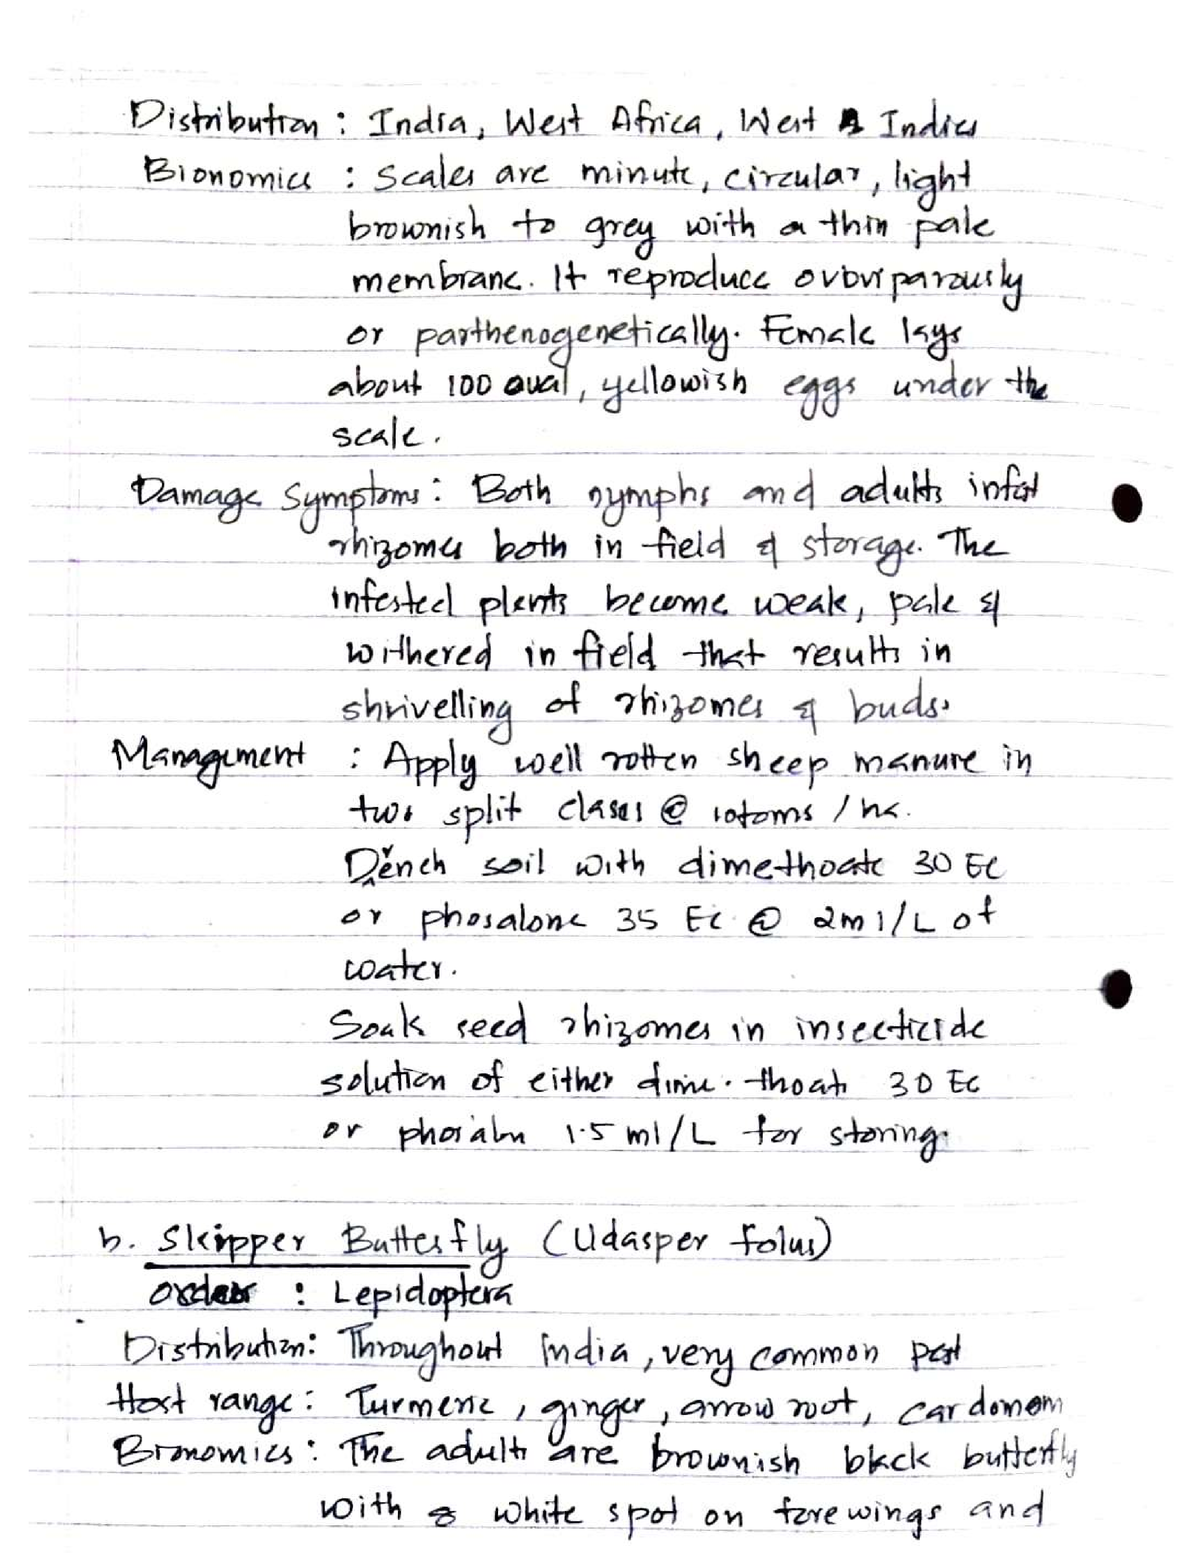 Distribution : India, West Africa, West Indies
Bionomics : Scales are minute, circular, light
brownish to grey with a thin pale
membrane. It reproduce ovoviparously
or parthenogenetically. Female lays
about 100 oval, yellowish eggs under the
scale.
Damage Symptoms : Both nymphs and adults infest
rhizomes both in field & storage. The
infested plants become weak, pale &
withered in field that results in
shrivelling of rhizomes & buds.
Management : Apply well rotten sheep manure in
two split @ 10 toms / ha.
Drench soil with dimethoate 30 EC
or phosalone 35 EC @ 2ml/L of
water.
Soak seed rhizomes in insecticide
solution of either dime. thoat 30 EC
or 1.5 ml/L for storing.
b. Skipper Butterfly (Udasper folus)
Order : Lepidoptera
Distribution : Throughout India, very common pest
Host range : Turmeric, ginger, arrow root, cardomom
Bionomics : The adults are brownish black butterfly
with 8 white spot on forewings and